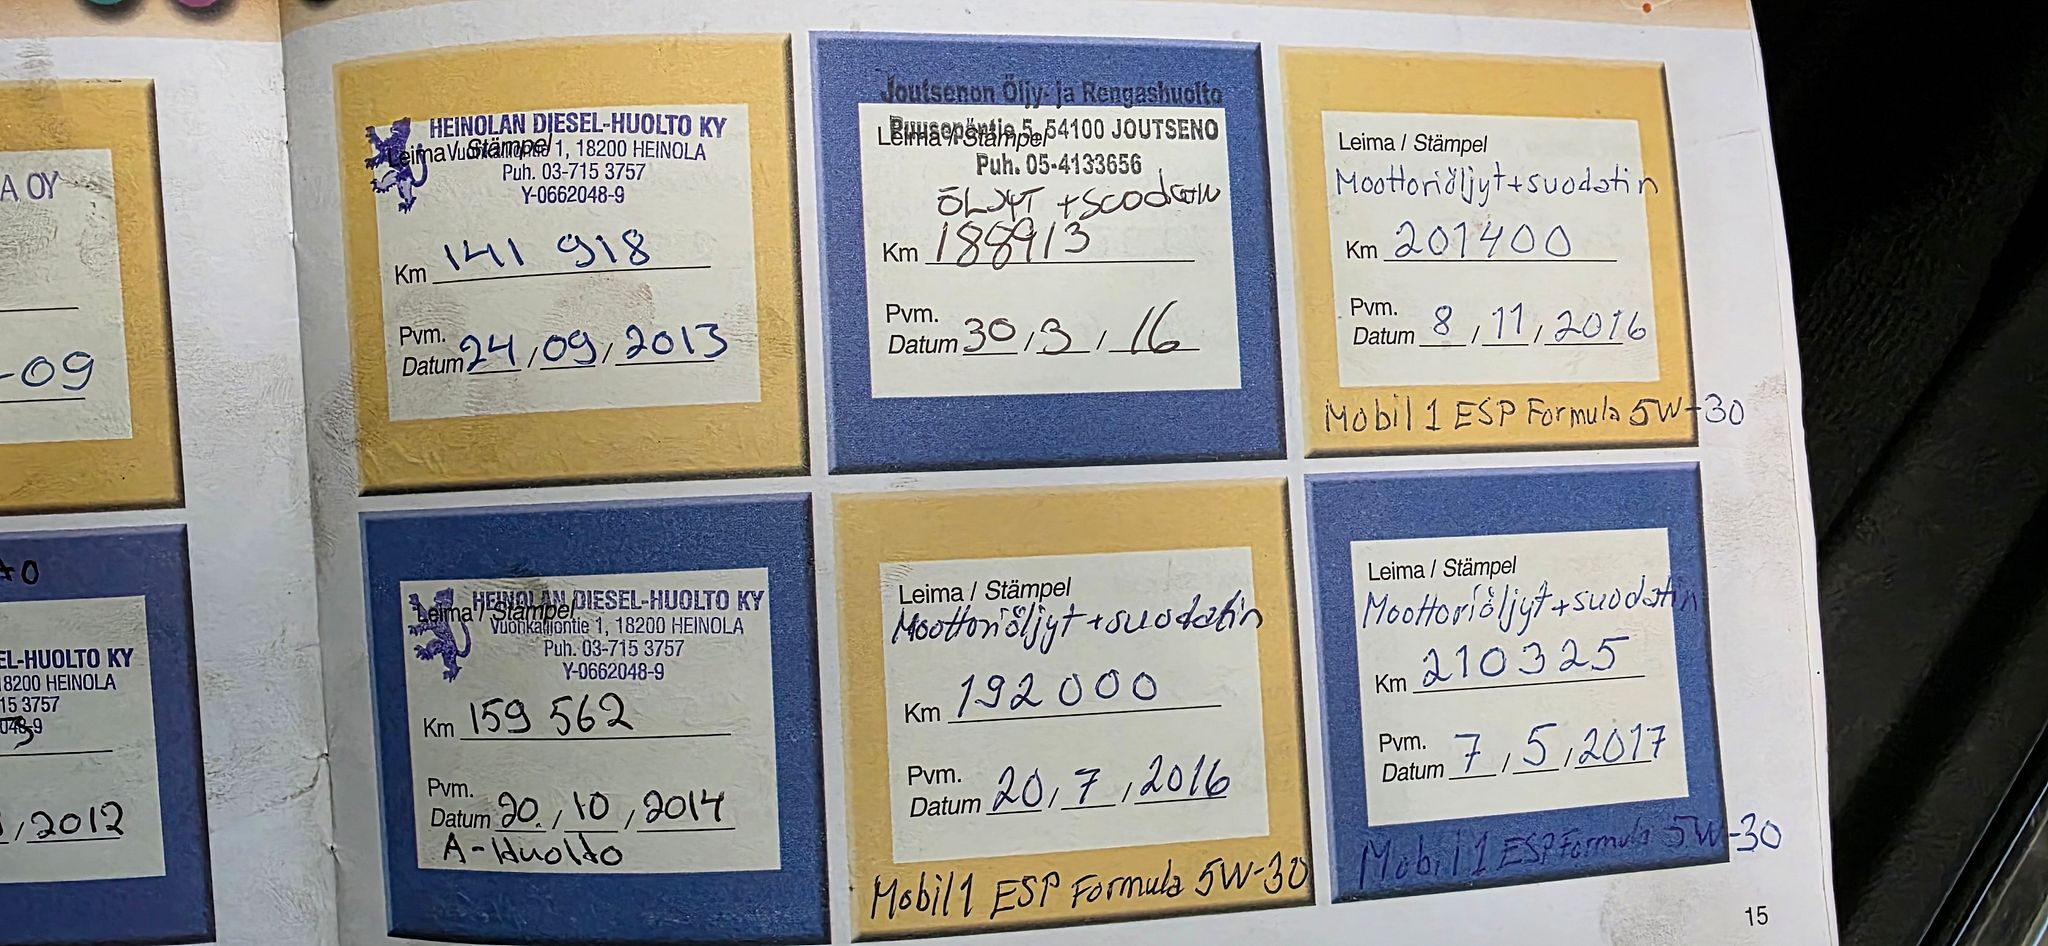 A OY
-09
HUOLTO KY
18200 HEINOLA
15 3757
2012
HEINOLAN DIESEL-HUOLTO KY
Leima / Stämpel 1, 18200 HEINOLA
Puh. 03-715 3757
Y-0662048-9
Km 141 918
Pvm.
Datum 24 / 09 / 2013
HEINOLAN DIESEL-HUOLTO KY
Leima / Stämpel
Vuorikationtie 1, 18200 HEINOLA
Puh. 03-715 3757
Y-0662048-9
Km 159 562
Pvm.
Datum 20. / 10 / 2014
A-Huolto
Joutsenon Öljy- ja Rengashuolto
Puusepäntie 5, 54100 JOUTSENO
Leima / Stämpel
Puh. 05-4133656
ÖLJYT + SUODATIN
Km 188913
Pvm.
Datum 30 / 3 / 16
Leima / Stämpel
Moottoriöljyt + suodatin
Km 192000
Pvm.
Datum 20 / 7 / 2016
Mobil 1 ESP Formula 5W-30
Leima / Stämpel
Moottoriöljyt + suodatin
Km 201400
Pvm.
Datum 8 / 11 / 2016
Mobil 1 ESP Formula 5W-30
Leima / Stämpel
Moottoriöljyt + suodatin
Km 210325
Pvm.
Datum 7 / 5 / 2017
Mobil 1 ESP Formula 5W-30
15